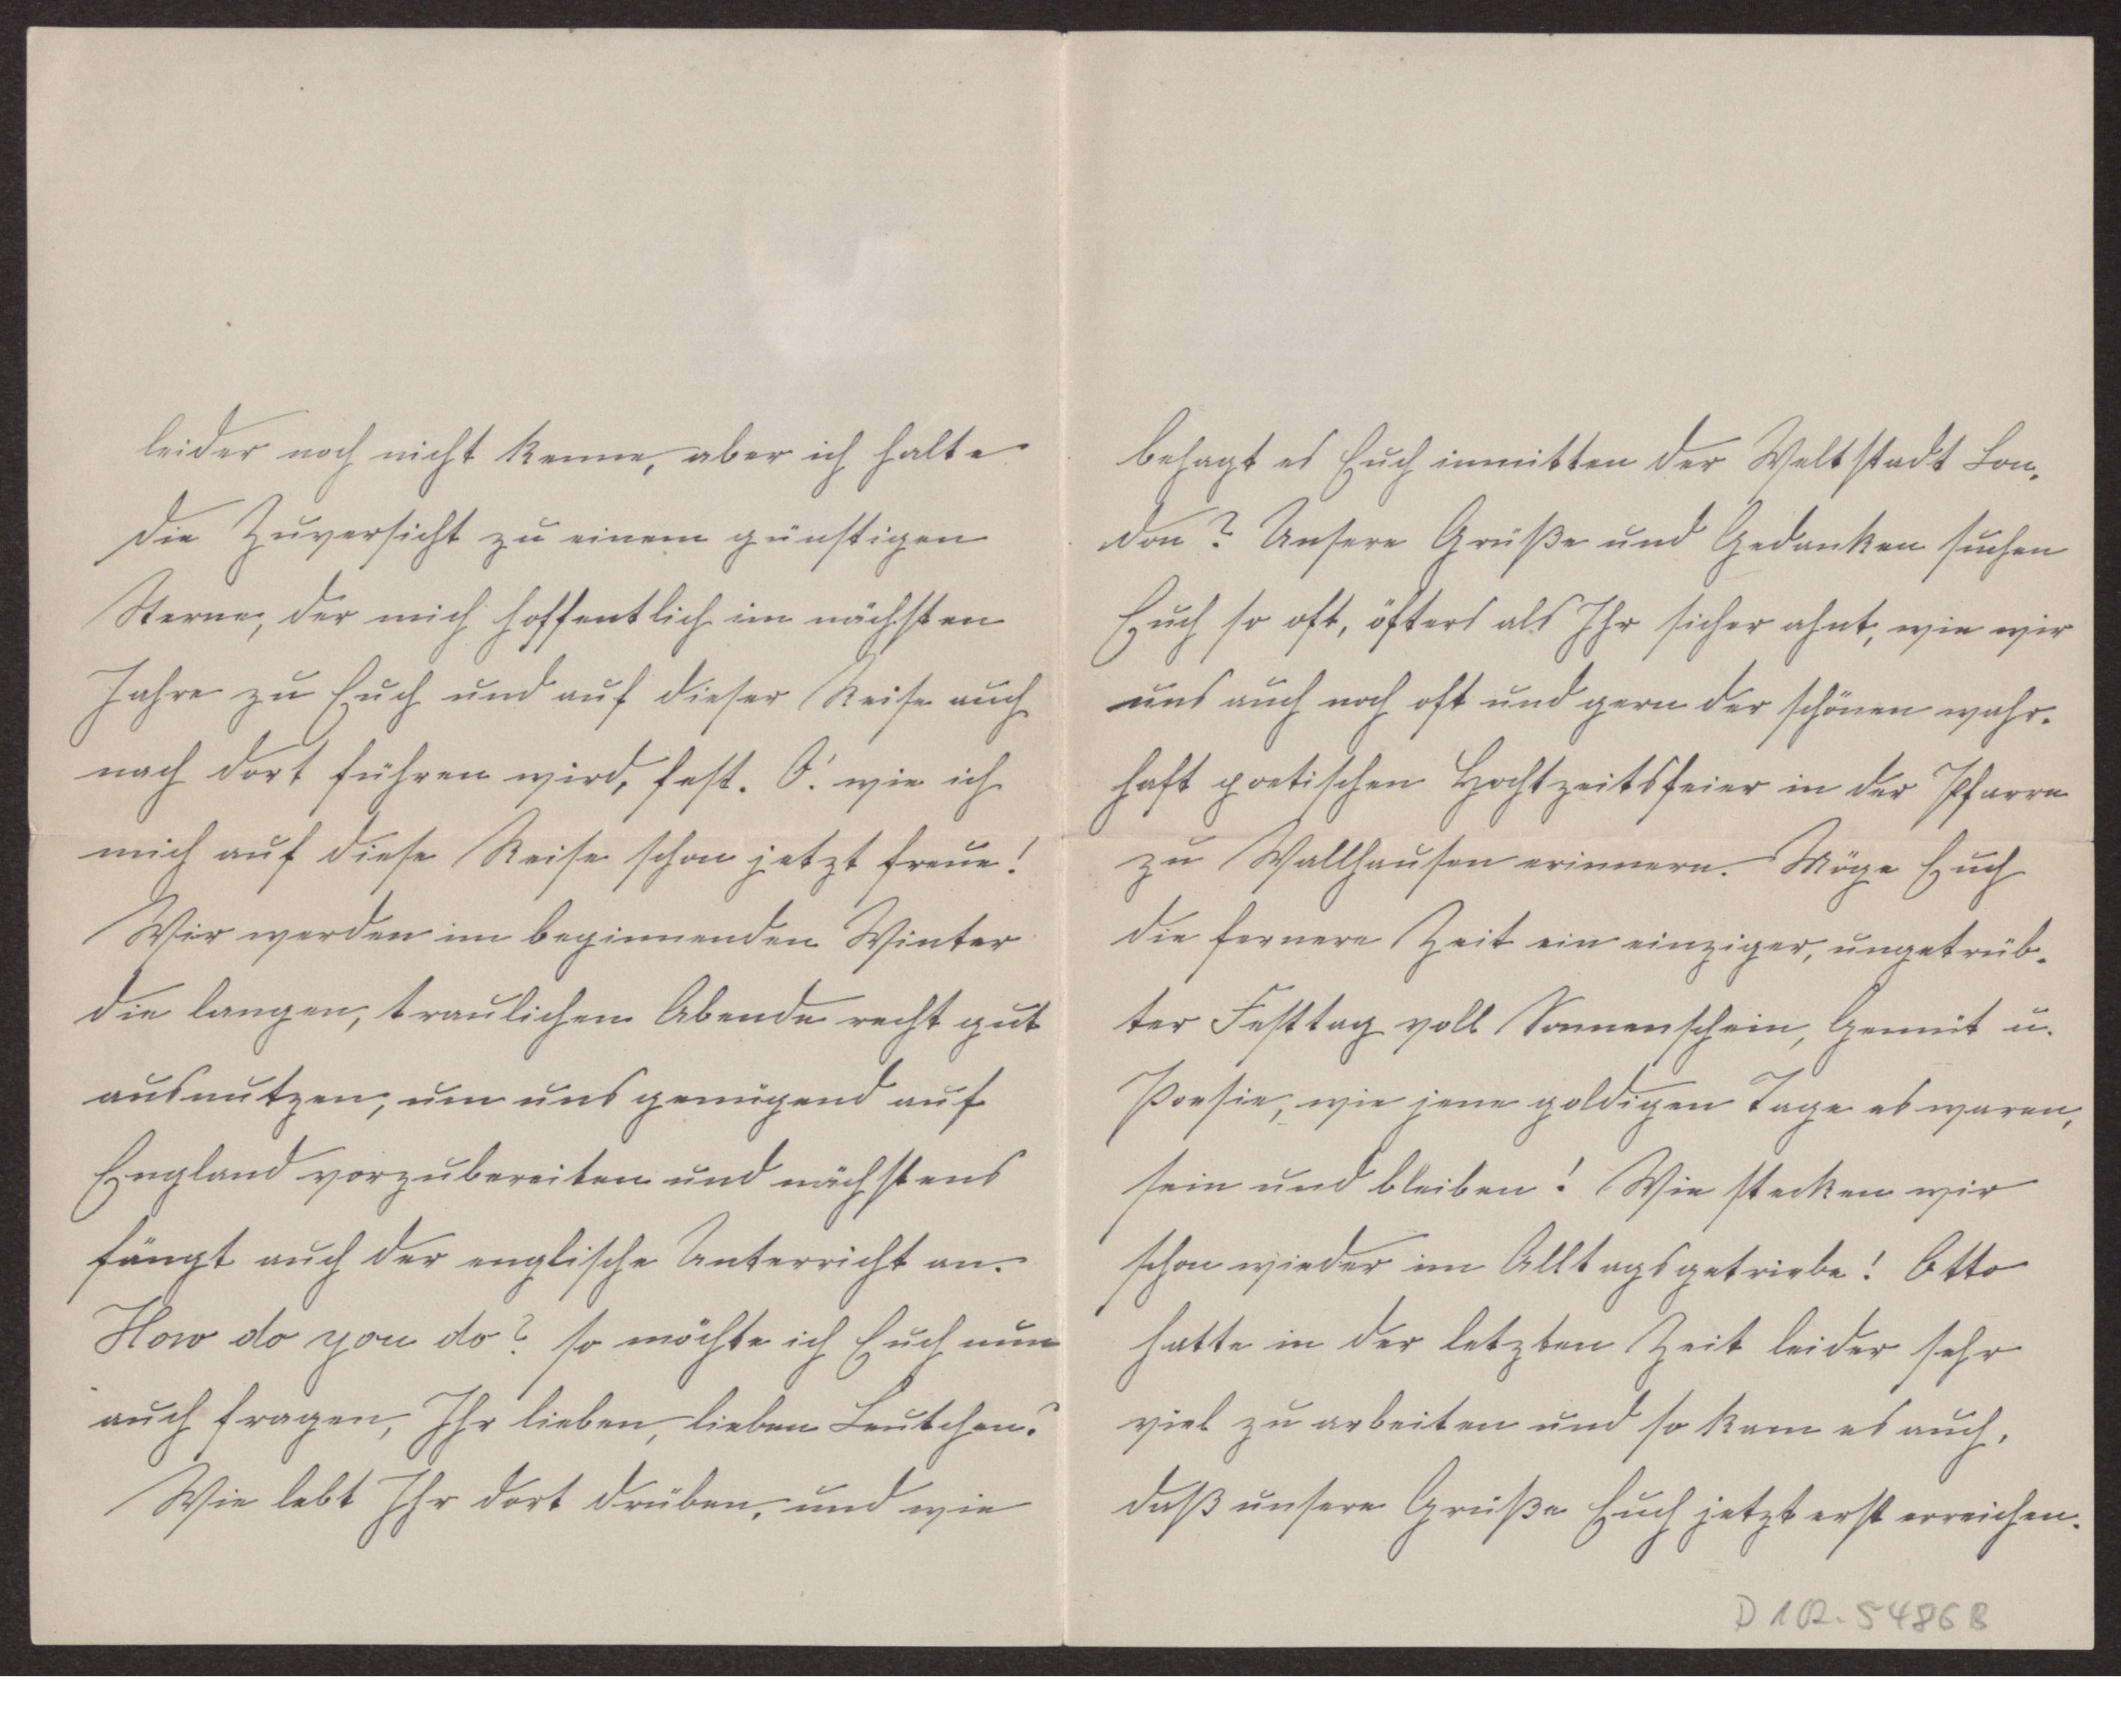 leider noch nicht kenne, aber ich halte
die Zuversicht zu einem günstigen
Sterne, der mich hoffentlich im nächsten
Jahre zu Euch und auf dieser Reise auch
nach dort führen wird, fest. O! wie ich
mich auf diese Reise schon jetzt freue!
Wir werden im beginnenden Winter
die langen, traulichen Abende recht gut
ausnutzen, um uns genügend auf
England vorzubereiten und nächstens
fängt auch der englische Unterricht an.
How do you do? so möchte ich Euch nun
auch fragen, Ihr lieben, lieben Leutchen?
Wie lebt Ihr dort drüben, und wie
behagt es Euch inmitten der Weltstadt Lon-
don? Unsere Grüße und Gedanken suchen
Euch so oft, öfters als Ihr sicher ahnt, wie wir
uns auch noch oft und gern der schönen wahr-
haft poetischen Hochtzeitsfeier in der Pfarre
zu Wallhausen erinnern. Möge Euch
die fernere Zeit ein einziger, ungetrüb-
ter Festtag voll Sonnenschein, Gemüt u.
Poesie, wie jene goldigen Tage es waren,
sein und bleiben! Wie stecken wir
schon wieder im Alltagsgetriebe! Otto
hatte in der letzten Zeit leider sehr
viel zu arbeiten und so kam es auch,
daß unsere Grüße Euch jetzt erst erreichen.
D 102-5486 B